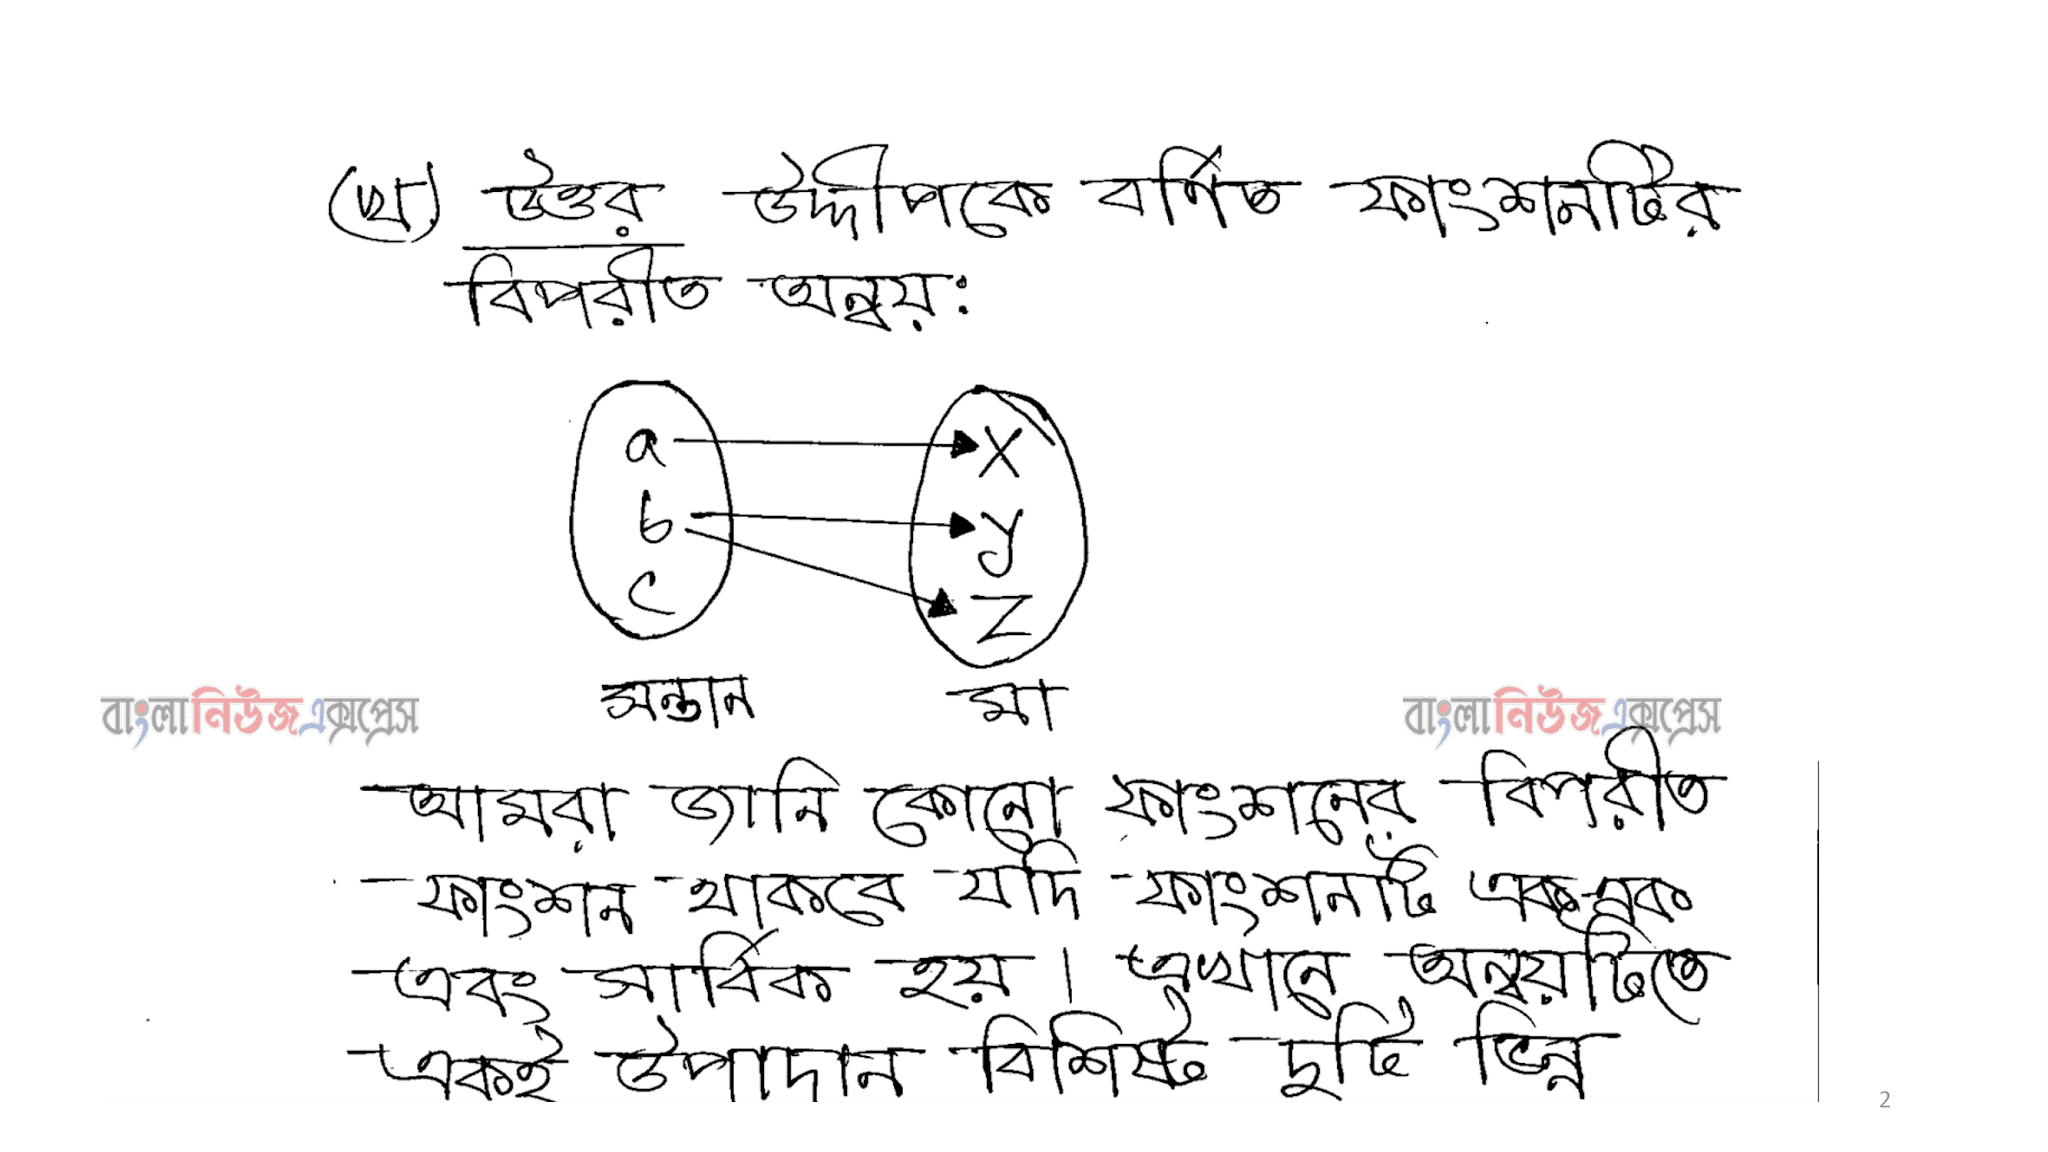 (খ) উত্তর উদ্দীপকে বর্ণিত ফাংশনটির
বিপরীত অন্বয়:
a X
b y
c Z
সন্তান মা
বাংলা নিউজ এক্সপ্রেস বাংলা নিউজ এক্সপ্রেস
আমরা জানি কোনো ফাংশনের বিপরীত
ফাংশন থাকবে যদি ফাংশনটি এক-এক
এবং সার্বিক হয়। এখানে অন্বয়টিতে
একই উপাদান বিশিষ্ট দুটি ভিন্ন
2